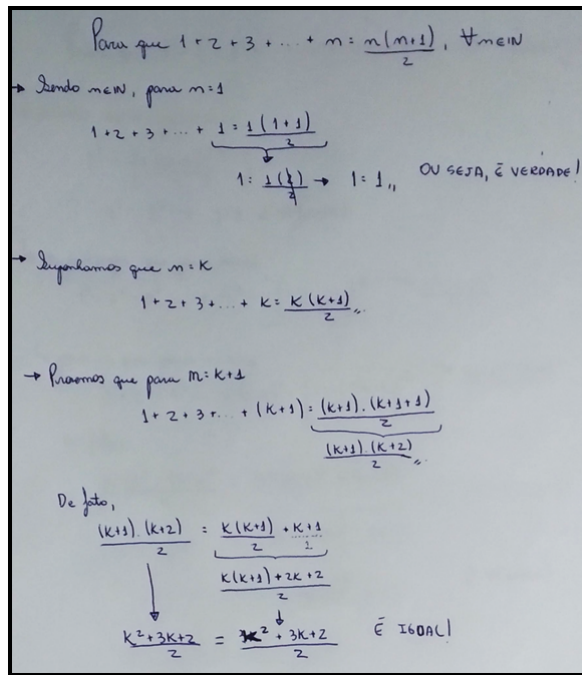 Para que 1 + 2 + 3 + ... + n = n(n+1)/2, ∀n∈IN
→ Sendo n∈IN, para n=1
1 + 2 + 3 + ... + 1 = 1(1+1)/2
1 = 1(2)/2 → 1 = 1,, OU SEJA, É VERDADE!
→ Suponhamos que n = K
1 + 2 + 3 + ... + K = K(K+1)/2,,
→ Provemos que para n = K+1
1 + 2 + 3 + ... + (K+1) = (K+1).(K+1+1)/2
(K+1).(K+2)/2,,
De fato,
(K+1).(K+2)/2 = K(K+1)/2 + K+1/1
K(K+1)+2K+2/2
K²+3K+2/2 = K²+3K+2/2 É IGUAL!